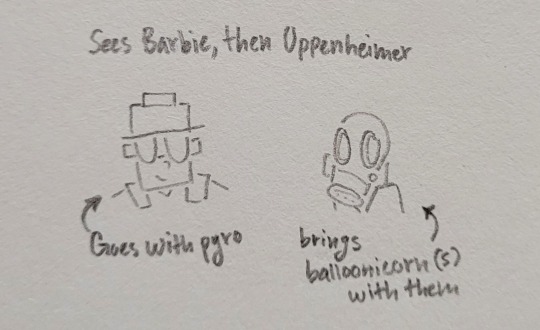 Sees Barbie, then Oppenheimer
Goes with pyro
brings
balloonicorn(s)
with them